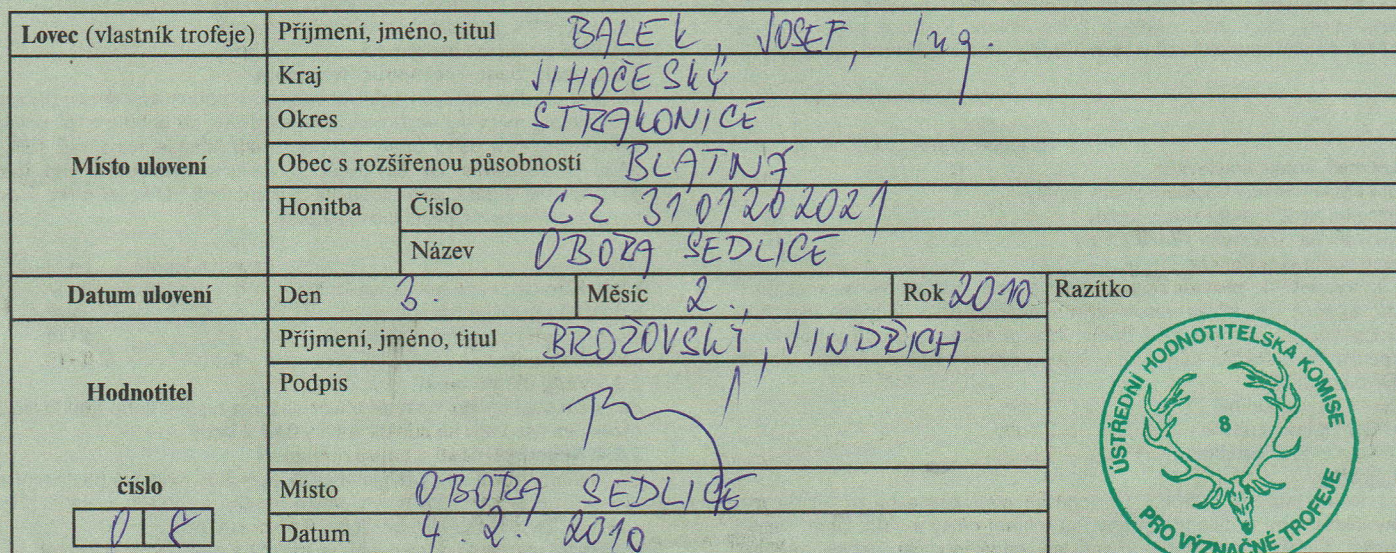 Lovec (vlastník trofeje) Příjmení, jméno, titul BALEK, JOSEF, Ing.
Místo ulovení
Kraj JIHOČESKÝ
Okres STRAKONICE
Obec s rozšířenou působností BLATNA
Honitba Číslo CZ 3101202021
Název OBORA SEDLICE
Datum ulovení Den 3. Měsíc 2. Rok 2010 Razítko
Hodnotitel
Příjmení, jméno, titul BROŽOVSKÝ, JINDŘICH
Podpis
číslo 08
Místo OBORA SEDLICE
Datum 4. 2. 2010
ÚSTŘEDNÍ HODNOTITELSKÁ KOMISE
8
PRO VÝZNAČNÉ TROFEJE